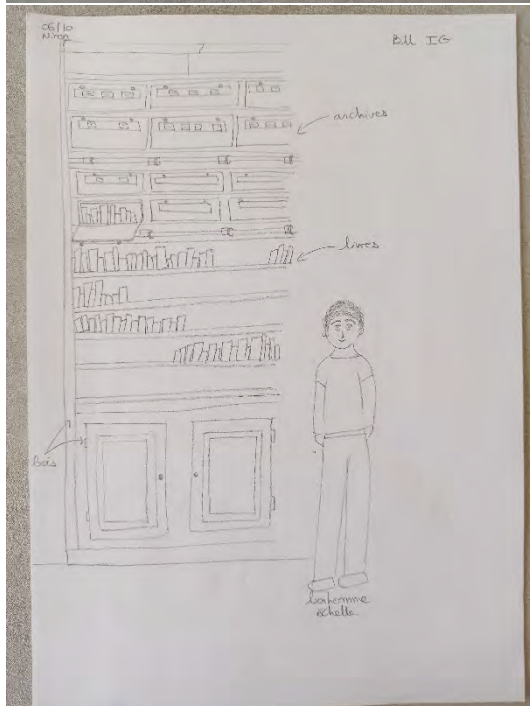 06/10
Bill IG
archives
livres
bois
bonhomme
échelle